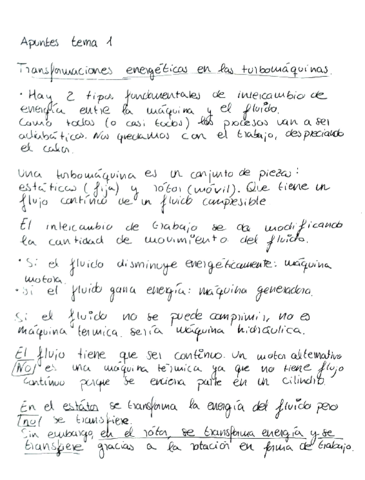 Apuntes tema 1
Transformaciones energéticas en las turbomáquinas.
· Hay 2 tipos fundamentales de intercambio de
energía entre la máquina y el fluido.
Como todos (o casi todos) los procesos van a ser
adiabáticos. Nos quedamos con el trabajo, despreciando
el calor.
Una turbomáquina es un conjunto de piezas:
estáticas (fija) y rótor (móvil). Que tiene un
flujo contínuo de un fluido compresible
El intercambio de trabajo se da modificando
la cantidad de movimiento del fluido.
· Si el fluido disminuye energéticamente: máquina
motora.
· Si el fluido gana energía: máquina generadora.
Si el fluido no se puede comprimir, no es
máquina térmica. sería máquina hidráulica.
El flujo tiene que ser contínuo. Un motor alternativo
NO es una máquina térmica ya que no tiene flujo
contínuo porque se encierra parte en un cilindro
En el estátor se transforma la energía del fluido pero
no se transfiere.
Sin embargo, en el rótor, se transforma energía y se
transfiere gracias a la rotación en forma de trabajo.